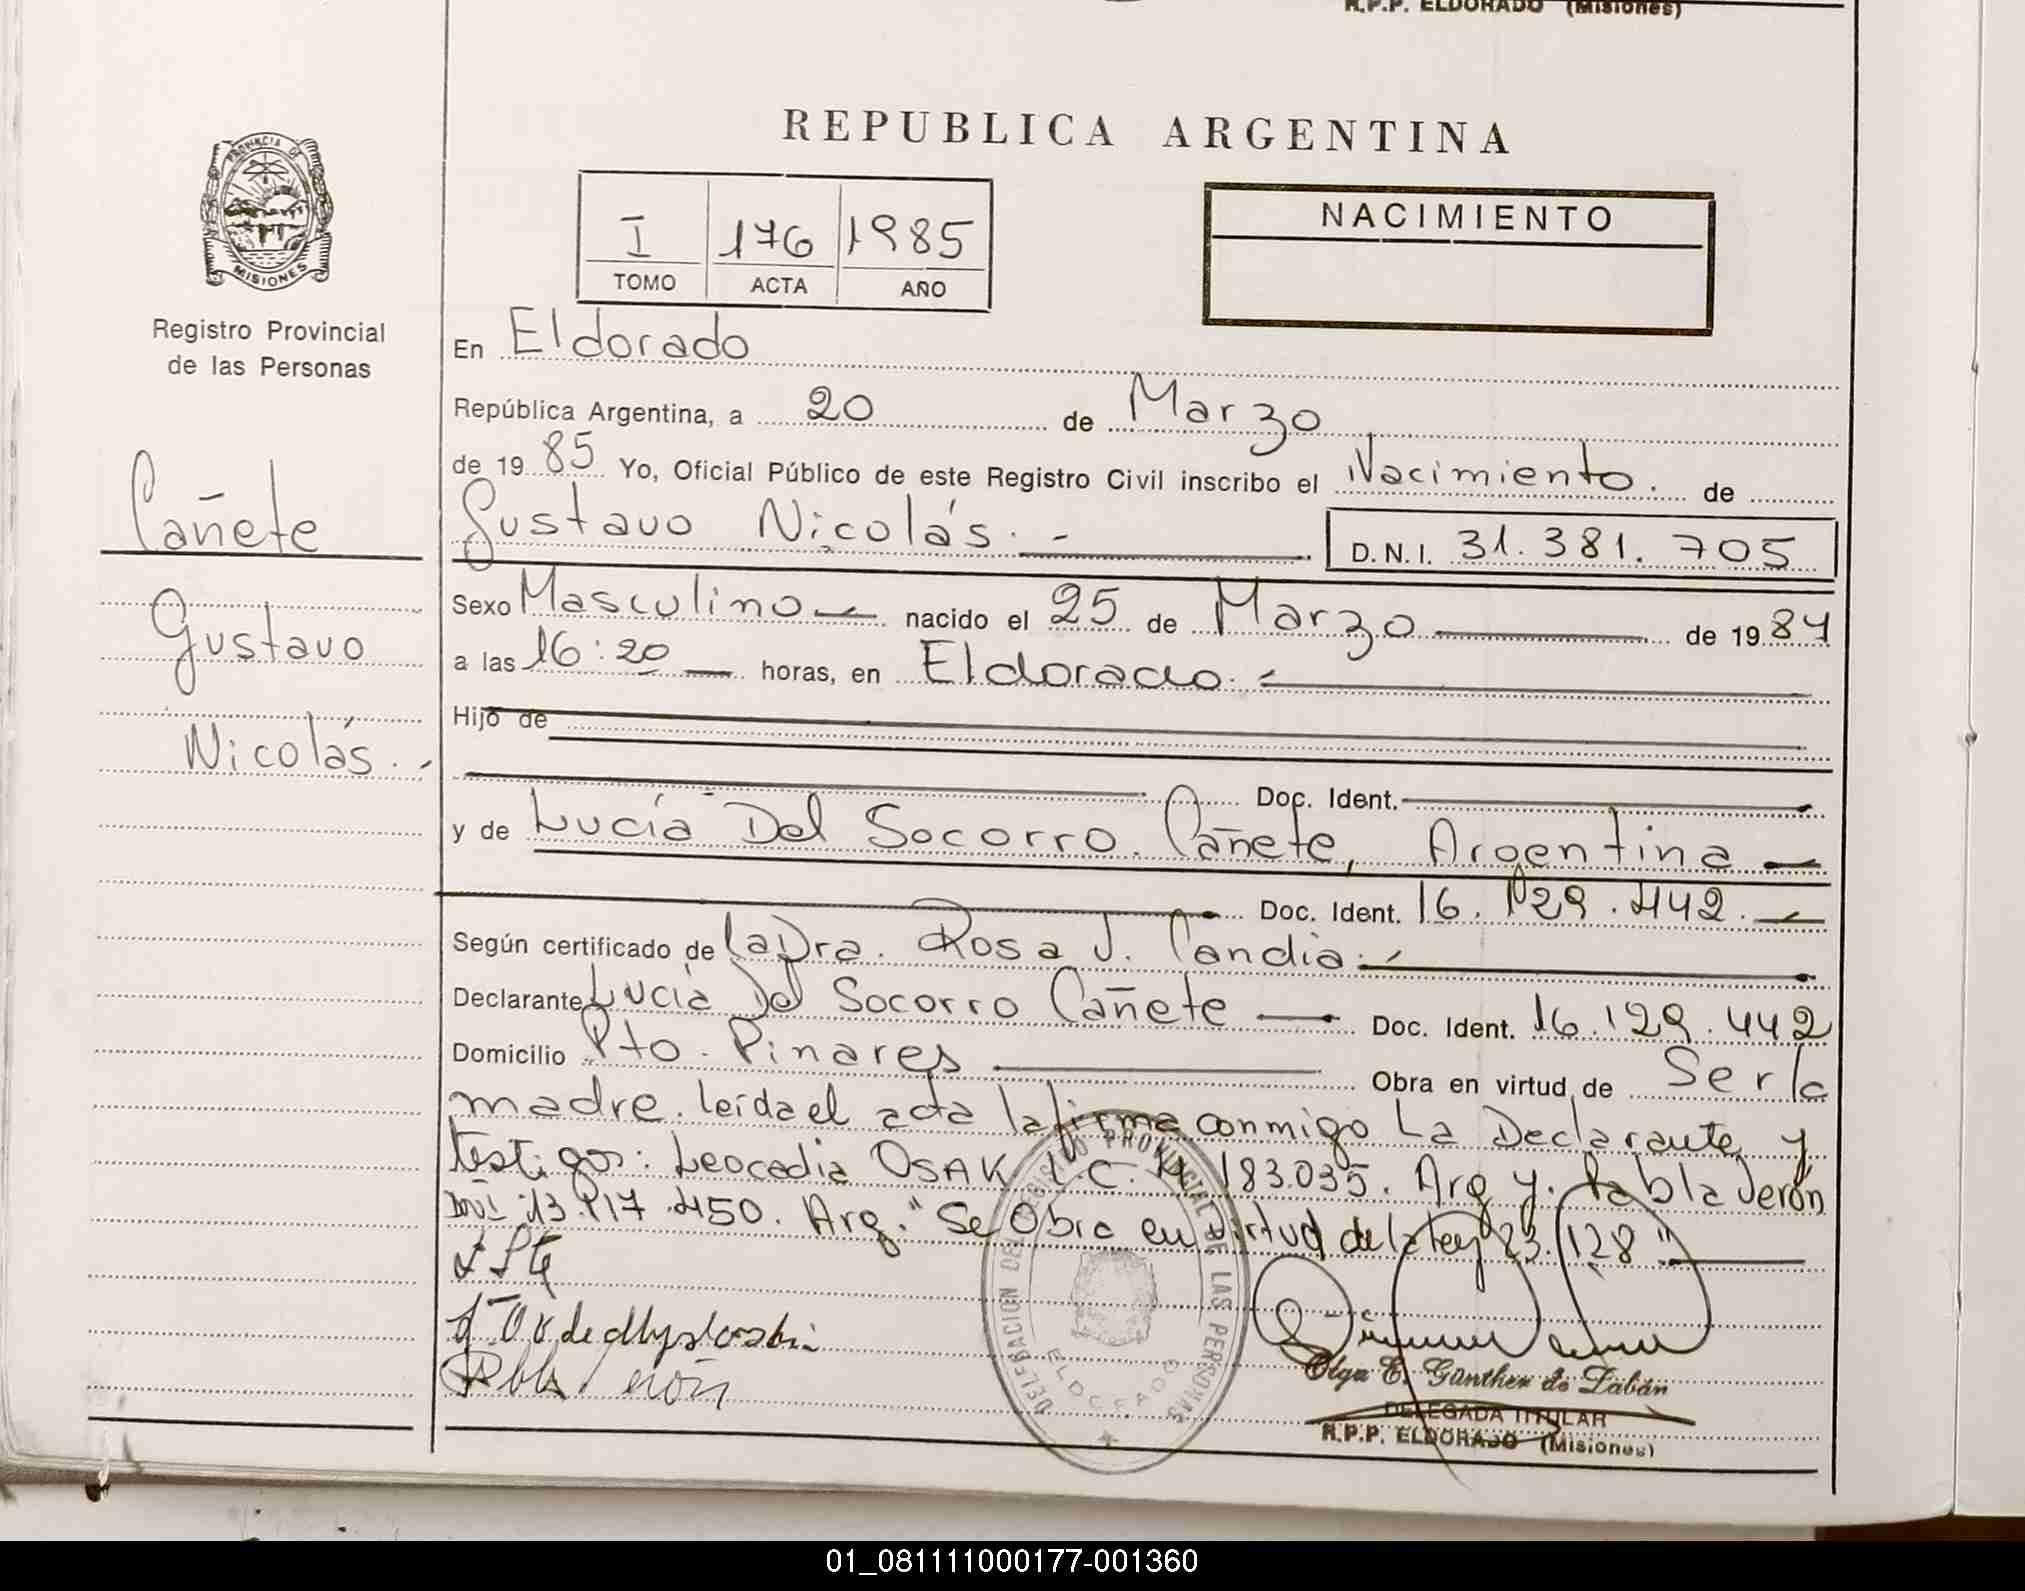 R.P.P. ELDORADO (Misiones)
REPUBLICA ARGENTINA
PROVINCIA DE
MISIONES
Registro Provincial
de las Personas
I 176 1985
TOMO ACTA AÑO
NACIMIENTO
En Eldorado
República Argentina, a 20 de Marzo
de 1985 Yo, Oficial Público de este Registro Civil inscribo el Nacimiento. de
Gustavo Nicolás.
D.N.I. 31.381.705
Cañete
Gustavo
Nicolás.
Sexo Masculino nacido el 25 de Marzo de 1984
a las 16:20 horas, en Eldorado.
Hijo de
Doc. Ident.
y de Lucía Del Socorro Cañete, Argentina
Doc. Ident. 16.129.442.
Según certificado de La Dra. Rosa J. Candia.
Declarante Lucía Del Socorro Cañete Doc. Ident. 16.129.442
Domicilio Pto. Pinares Obra en virtud de Ser la
madre. leída el acta la firma conmigo La Declarante y
testigos: Leocadia OSAK L.C. 4.183.035. Arg y. Pabla Verón
DNI 13.817.450. Arg. "Se Obra en virtud de la ley 23.128"
DELEGACION DEL REGISTRO PROVINCIAL DE LAS PERSONAS
ELDORADO
Olga E. Günther de Labán
DELEGADA TITULAR
R.P.P. ELDORADO (Misiones)
01_081111000177-001360